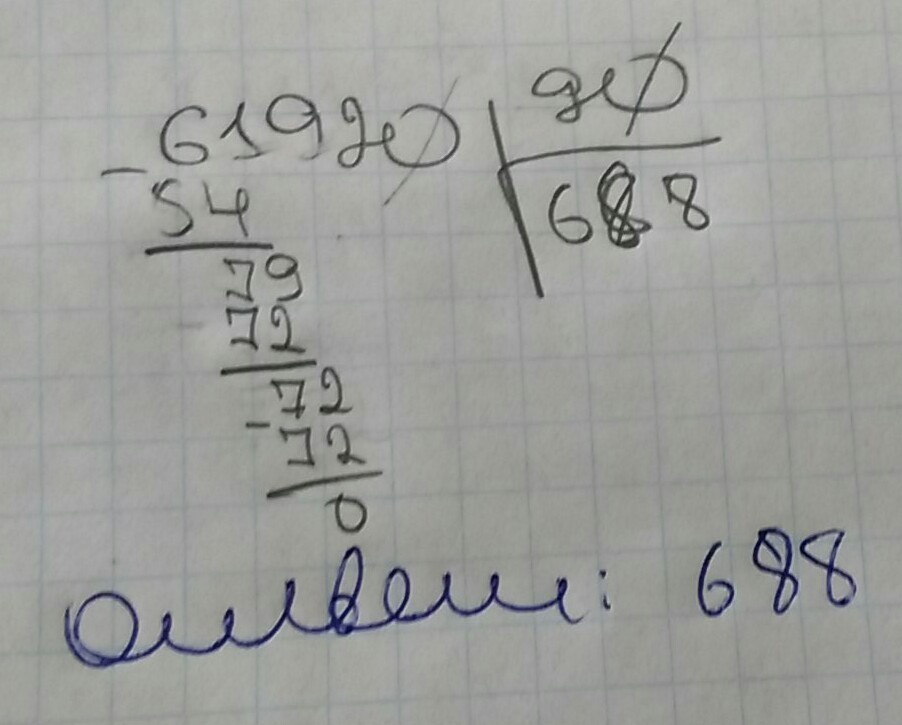 61920 90
54 688
79
72
72
72
0
Ответ: 688